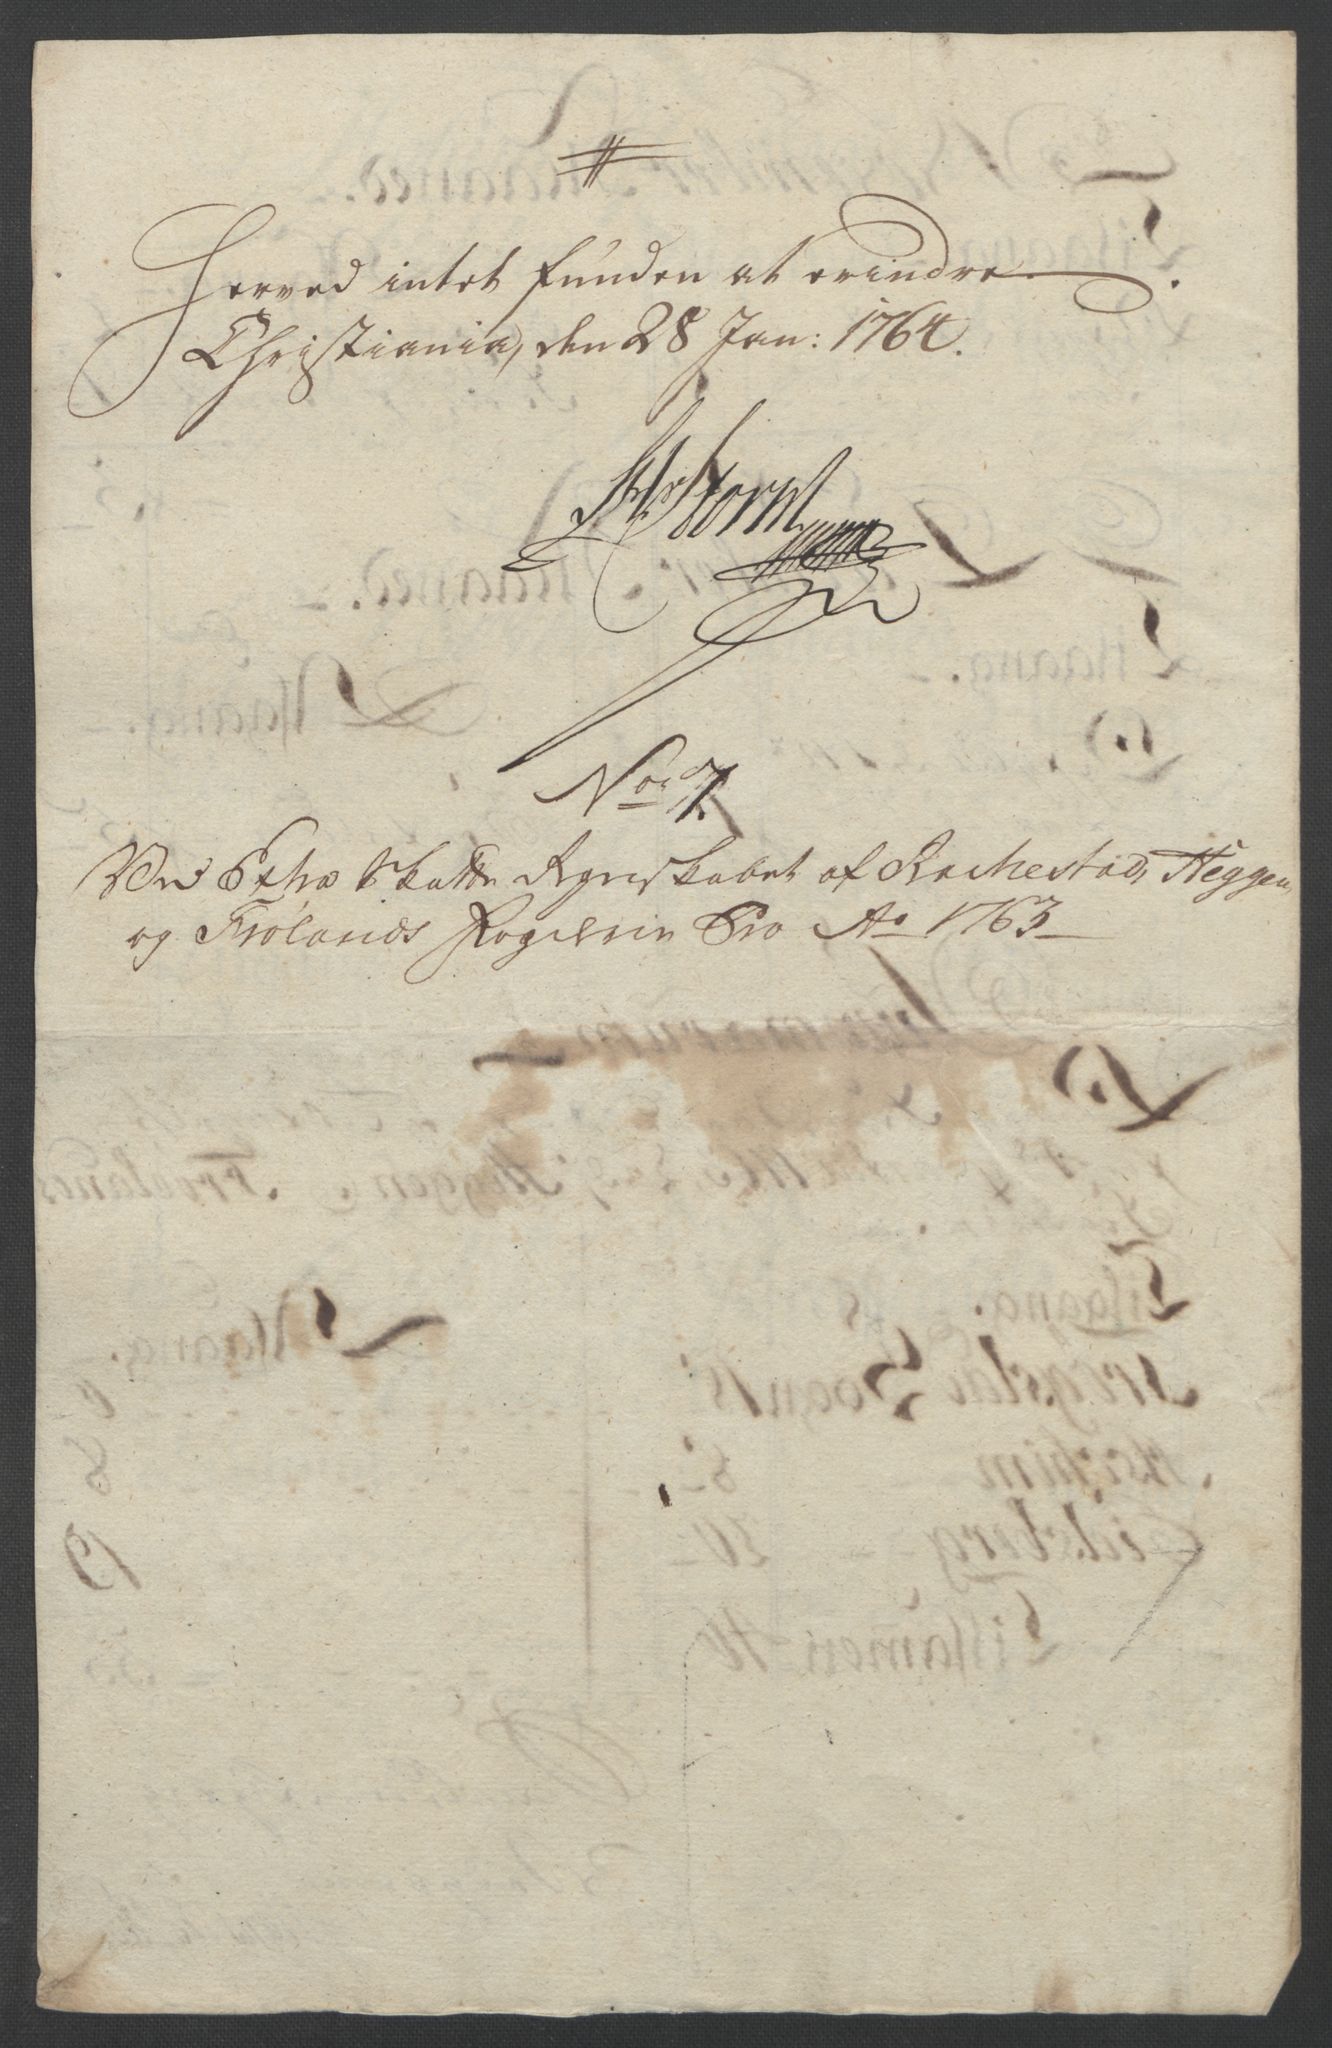 Herved intet funden at erindre
Christiania, den 28 Jan: 1764.
Storm
No: 7
Ved Extra Skatte Regnskabet af Rachestad, Heggen,
og Frølands Fogderie Pro Ao 1763